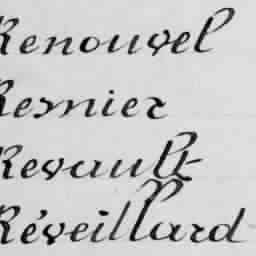 Renouvel
Resnier
Revault
Réveillard